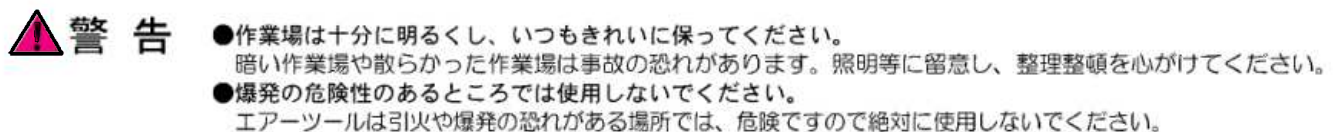 警 告 ●作業場は十分に明るくし、いつもきれいに保ってください。
暗い作業場や散らかった作業場は事故の恐れがあります。照明等に留意し、整理整頓を心がけてください。
●爆発の危険性のあるところでは使用しないでください。
エアーツールは引火や爆発の恐れがある場所では、危険ですので絶対に使用しないでください。